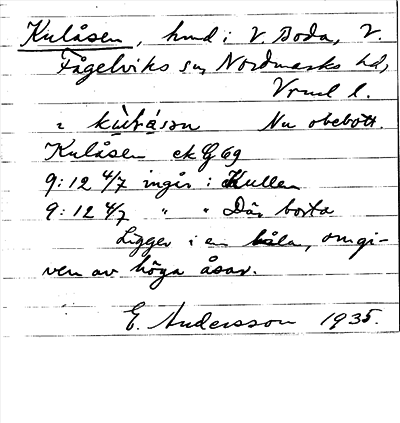 Kulåsen, hmd i V. Boda, V.
Fågelviks sn, Nordmarks hd,
Vrml l.
kùlåsən Nu obebott.
Kulåsen ek G 69
9:12 4/7 ingår i Kullen
9:12 4/7 " " Där borta
Ligger i en håla, omgi-
ven av höga åsar.
E. Andersson 1935.